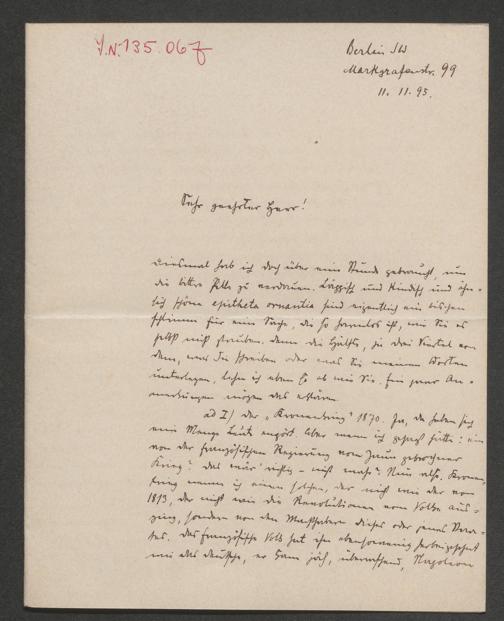 J.N. 135.067
Berlin SW
Markgrafenstr. 99
11. 11. 95.
Sehr geehrter Herr!
diesmal hab ich doch über eine Stunde gebraucht, um
die bittre Pille zu verdauen. Läppisch und kindisch und ähn-
lich schöne epitheta ornantia sind eigentlich ein bischen
schlimm für eine Sache, die so harmlos ist, wie Sie es
selbst nicht glauben. Denn die Hälfte, ja drei Viertel von
dem, was Sie schreiben oder was Sie meinen Worten
unterlegen, lehne ich eben so ab wie Sie. Ein paar An-
merkungen mögen das erklären
ad I) der „Kronenkrieg" 1870. Ja, da haben sich
eine Menge Leute empört. Aber wenn ich gesagt hätte: ein
von der französischen Regierung vom Zaun gebrochner
Krieg? das wär' richtig – nicht wahr? Nun also. Kronen-
krieg nenne ich einen solchen, der nicht wie der von
1813, der nicht wie die Revolutionen vom Volke aus-
ging, sondern von den Machthabern dieses oder jenes
Das französische Volk hat ihn ebensowenig herbeigesehnt
wie das deutsche, er kam jäh, überraschend, Napoleon